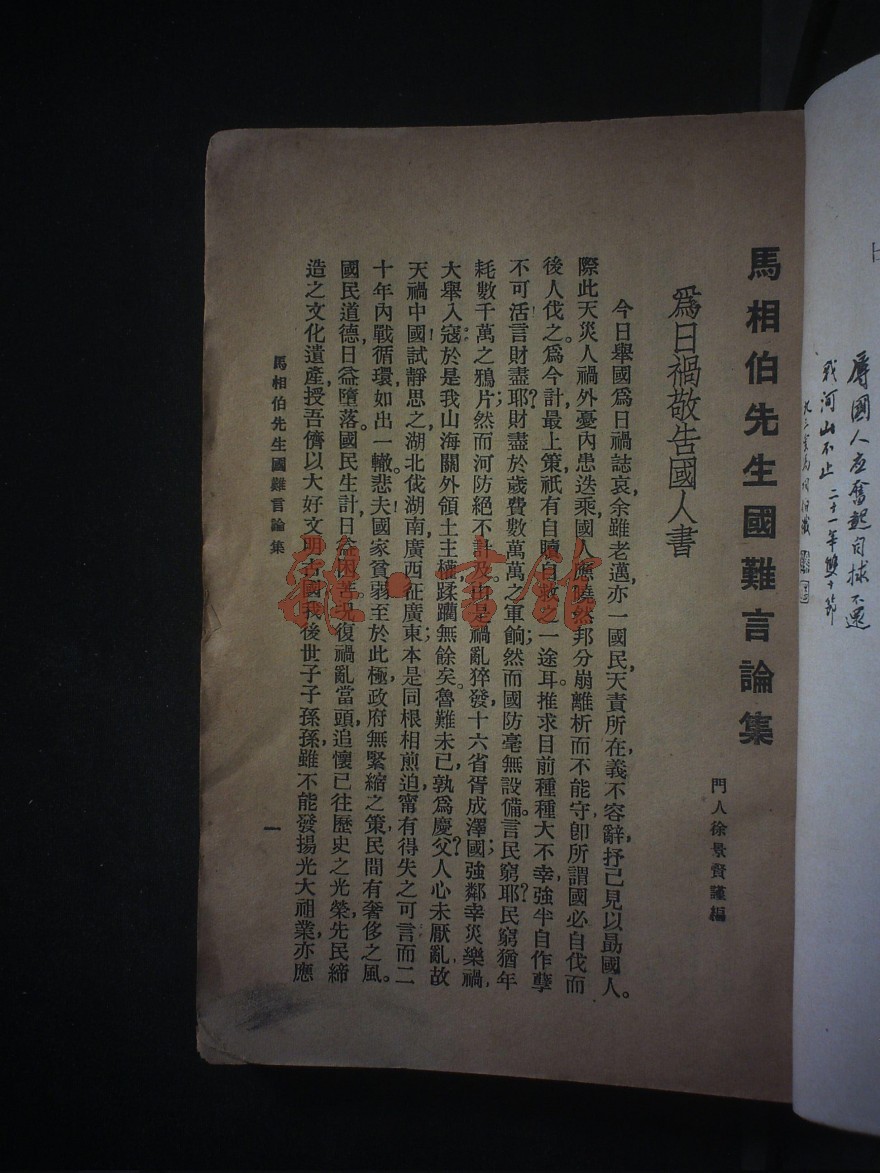 辱國人应奮起自救不還
我河山不止 二十一年雙十節
馬相伯先生國難言論集
門人徐景賢謹編
爲日禍敬告國人書
今日舉國爲日禍誌哀,余雖老邁,亦一國民,天責所在,義不容辭,抒己見以勗國人。
際此天災人禍,外憂內患迭乘,國人應曉然邦分崩離析而不能守,卽所謂國必自伐而
後人伐之。爲今計,最上策祇有自贖自救之一途耳。推求目前種種大不幸,強半自作孽
不可活。言財盡耶?財盡於歲費數萬萬之軍餉;然而國防毫無設備。言民窮耶?民窮猶年
耗數千萬之鴉片;然而河防絕不計及。由是禍亂猝發,十六省胥成澤國;強鄰幸災樂禍,
大舉入寇,於是我山海關外領土主權,蹂躪無餘矣。魯難未已,孰爲慶父?人心未厭亂,故
天禍中國!試靜思之,湖北伐湖南,廣西征廣東;本是同根,相煎迫,甯有得失之可言,而二
十年內戰循環,如出一轍。悲夫!國家貧弱,至於此極,政府無緊縮之策,民間有奢侈之風。
國民道德,日益墮落。國民生計,日益困苦。現復禍亂當頭,追懷已往歷史之光榮,先民締
造之文化遺產,授吾儕以大好文明古國,我後世子子孫孫,雖不能發揚光大祖業,亦應
馬相伯先生國難言論集
一
雜·書館